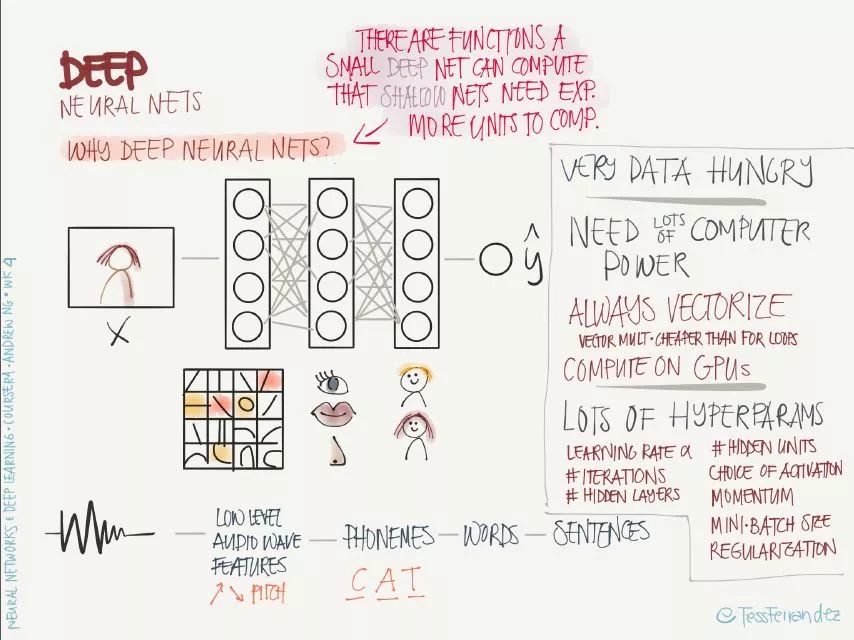 DEEP
NEURAL NETS
WHY DEEP NEURAL NETS?
THERE ARE FUNCTIONS A
SMALL DEEP NET CAN COMPUTE
THAT SHALLOW NETS NEED EXP.
MORE UNITS TO COMP.
X
ŷ
VERY DATA HUNGRY
NEED LOTS OF COMPUTER
POWER
ALWAYS VECTORIZE
VECTOR MULT. CHEAPER THAN FOR LOOPS
COMPUTE ON GPUs
LOTS OF HYPERPARAMS
LEARNING RATE α
# ITERATIONS
# HIDDEN LAYERS
# HIDDEN UNITS
CHOICE OF ACTIVATION
MOMENTUM
MINI-BATCH SIZE
REGULARIZATION
LOW LEVEL
AUDIO WAVE
FEATURES
↗ ↘ PITCH
PHONEMES
C A T
WORDS
SENTENCES
NEURAL NETWORKS & DEEP LEARNING · COURSERA · ANDREW NG · WK 4
@TessFerrandez